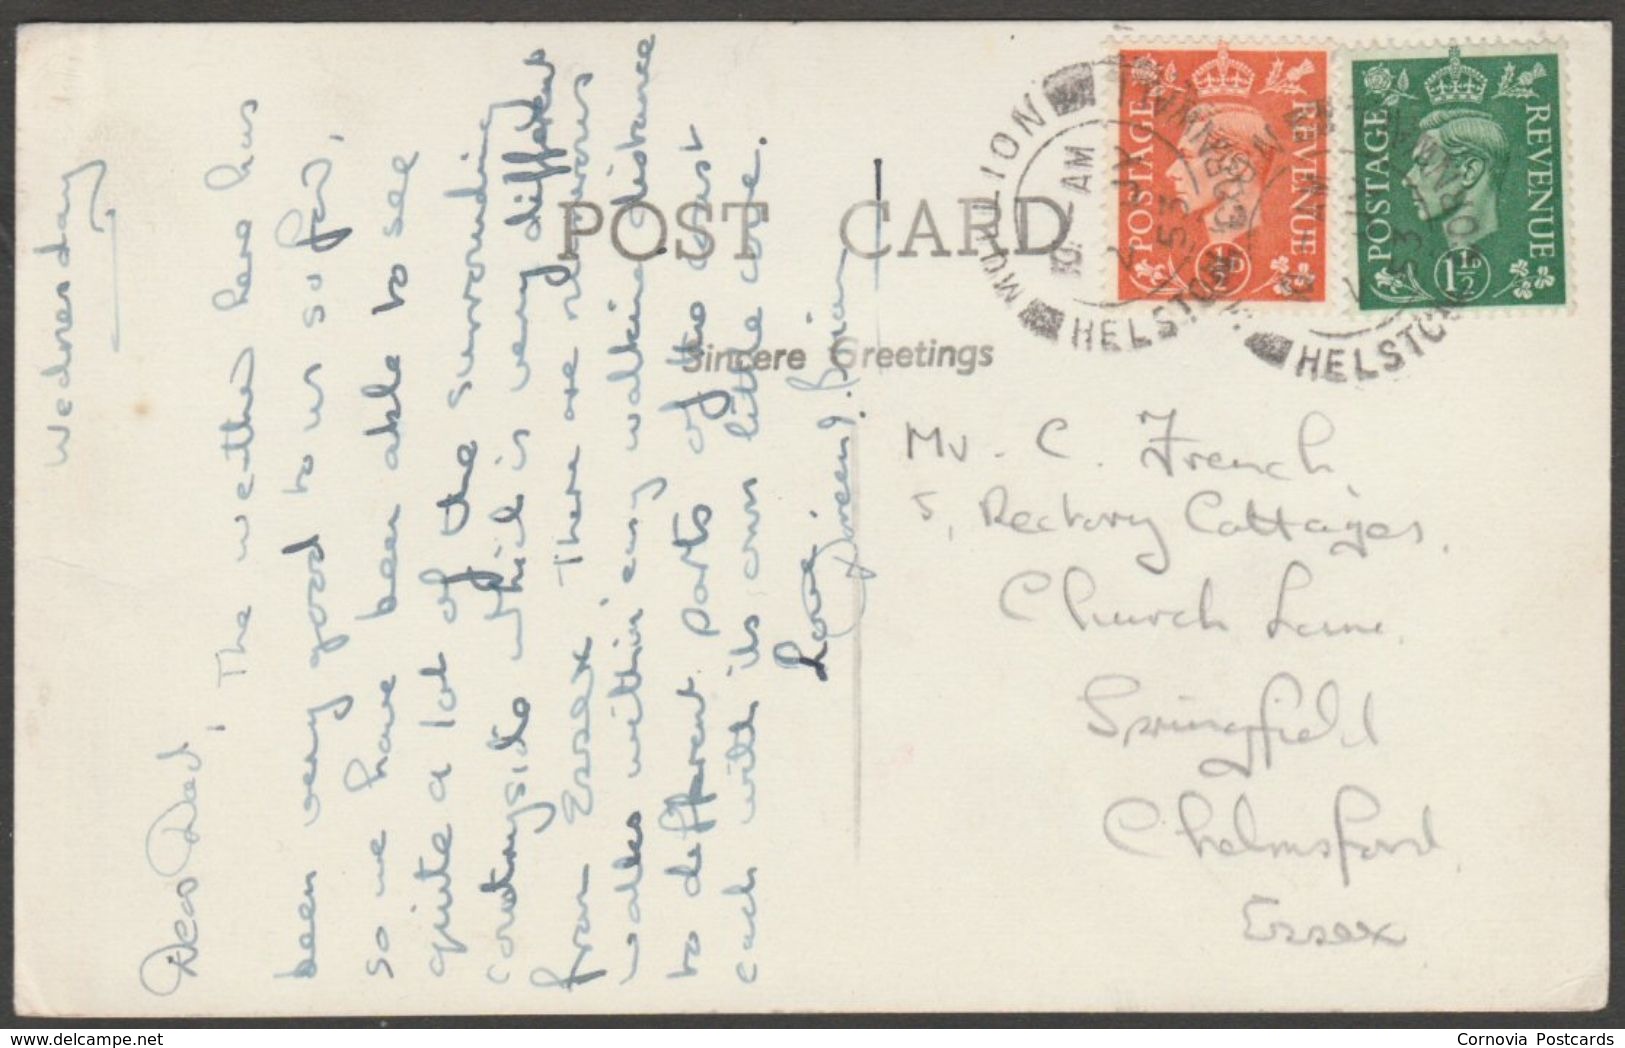 Wednesday
Dear Dad,
The weather here has
been very good to us so far,
so we have been able to see
quite a lot of the surrounding
countryside which is very different
from Essex. There are numerous
walks within easy walking distance
to different parts of the coast
each with its own little cove.
Love
Brian
POST CARD
Sincere Greetings
MULLION
HELSTON
CORNWALL
AM
53
POSTAGE REVENUE
½D
POSTAGE REVENUE
1½D
HELSTON
Mr. C. French,
5, Rectory Cottages,
Church Lane,
Springfield
Chelmsford,
Essex
Cornovia Postcards